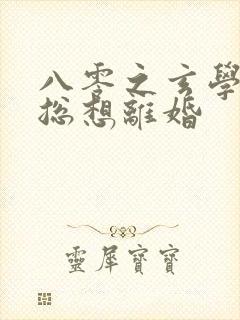 八零之玄學
總想離婚
靈犀寶寶